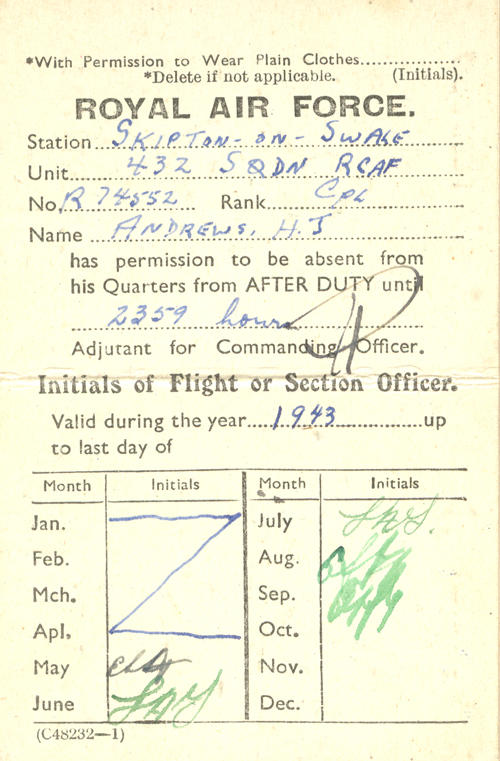 *With Permission to Wear Plain Clothes..................
*Delete if not applicable. (Initials).
ROYAL AIR FORCE.
Station SKIPTON-ON-SWALE
Unit 432 SQDN RCAF
No. R 74552 Rank CPL
Name ANDREWS, H.J
has permission to be absent from
his Quarters from AFTER DUTY until
2359 hours
Adjutant for Commanding Officer.
Initials of Flight or Section Officer.
Valid during the year 1943 up
to last day of
Month Initials Month Initials
Jan. July
Feb. Aug.
Mch. Sep.
Apl. Oct.
May Nov.
June Dec.
(C48232—1)